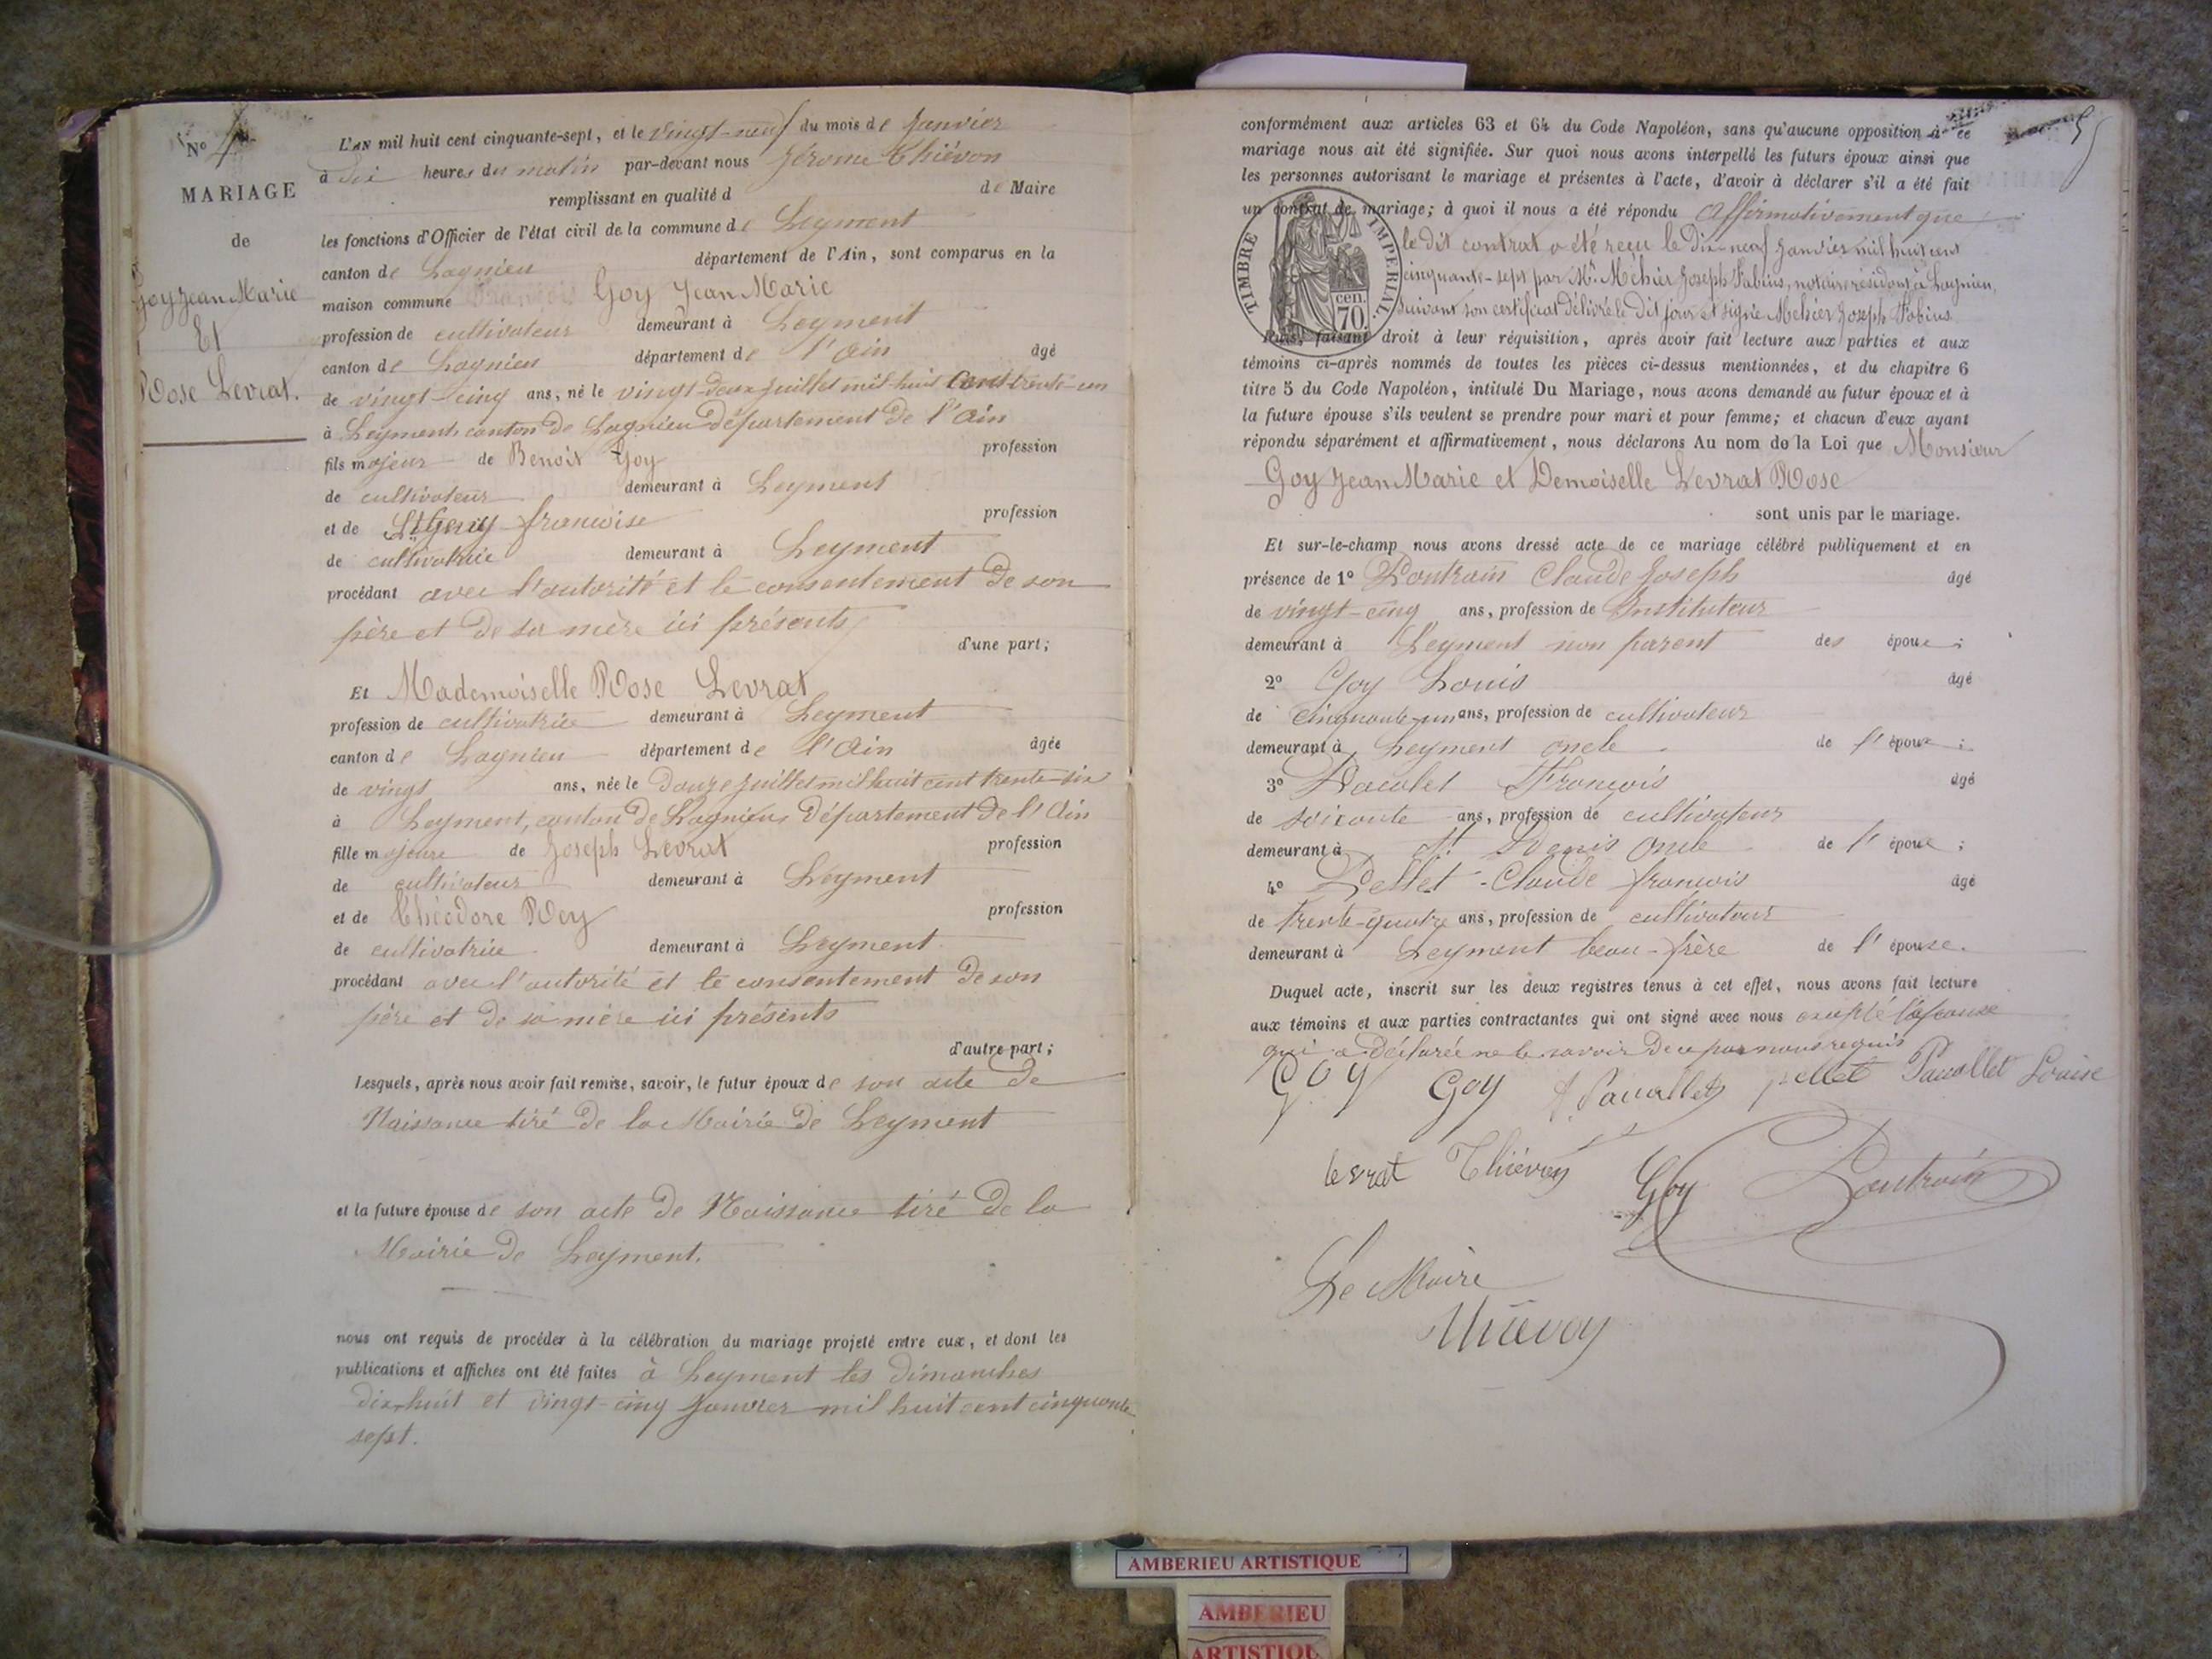 No 4
MARIAGE
de
Goy Jean Marie
Et
Rose Levrat.
L'AN mil huit cent cinquante-sept, et le vingt-neuf du mois de Janvier
à dix heures du matin par-devant nous Jérome Thiévon
remplissant en qualité d de Maire
les fonctions d'Officier de l'état civil de la commune de Leyment
canton de Lagnieu département de l'Ain, sont comparus en la
maison commune Goy Jean Marie
profession de cultivateur demeurant à Leyment
canton de Lagnieu département de l'Ain âgé
de vingt-cinq ans, né le vingt-deux juillet mil huit cent trente-un
à Leyment, canton de Lagnieu Département de l'Ain
fils majeur de Benoit Goy profession
de cultivateur demeurant à Leyment
et de françoise profession
de cultivatrice demeurant à Leyment
procédant avec l'autorité et le consentement de son
père et de sa mère ici présents
d'une part;
Et Mademoiselle Rose Levrat
profession de cultivatrice demeurant à Leyment
canton de Lagnieu département de l'Ain âgée
de vingt ans, née le Douze juillet mil huit cent trente-six
à Leyment, canton de Lagnieu, Département de l'Ain
fille majeure de Joseph Levrat profession
de cultivateur demeurant à Leyment
et de Théodore Rey profession
de cultivatrice demeurant à Leyment
procédant avec l'autorité et le consentement de son
père et de sa mère ici présents
d'autre part;
Lesquels, après nous avoir fait remise, savoir, le futur époux de son acte de
Naissance tiré de la Mairie de Leyment
et la future épouse de son acte de Naissance tiré de la
Mairie de Leyment.
nous ont requis de procéder à la célébration du mariage projeté entre eux, et dont les
publications et affiches ont été faites à Leyment les dimanches
dix-huit et vingt-cinq Janvier mil huit cent cinquante
sept.
5
conformément aux articles 63 et 64 du Code Napoléon, sans qu'aucune opposition à ce
mariage nous ait été signifiée. Sur quoi nous avons interpellé les futurs époux ainsi que
les personnes autorisant le mariage et présentes à l'acte, d'avoir à déclarer s'il a été fait
un contrat de mariage; à quoi il nous a été répondu Affirmativement que
le dit contrat a été reçu le Dix-neuf Janvier mil huit cent
cinquante-sept par Mr. Méhier Joseph Fabius, notaire résidant à Lagnieu,
suivant son certificat délivré le dit jour et signé Mehier Joseph Fabius
TIMBRE IMPERIAL.
cen. 70.
Puis, faisant droit à leur réquisition, après avoir fait lecture aux parties et aux
témoins ci-après nommés de toutes les pièces ci-dessus mentionnées, et du chapitre 6
titre 5 du Code Napoléon, intitulé Du Mariage, nous avons demandé au futur époux et à
la future épouse s'ils veulent se prendre pour mari et pour femme; et chacun d'eux ayant
répondu séparément et affirmativement, nous déclarons Au nom de la Loi que Monsieur
Goy Jean Marie et Demoiselle Levrat Rose
sont unis par le mariage.
Et sur-le-champ nous avons dressé acte de ce mariage célébré publiquement et en
présence de 1º Claude Joseph âgé
de vingt-cinq ans, profession de Instituteur
demeurant à Leyment non parent des époux;
2º Goy Louis âgé
de Cinquante-un ans, profession de cultivateur
demeurant à Leyment oncle de l'époux;
3º François âgé
de soixante ans, profession de cultivateur
demeurant à St. Denis Oncle de l'époux;
4º Pellet Claude françois âgé
de trente-quatre ans, profession de cultivateur
demeurant à Leyment beau-frère de l'épouse.
Duquel acte, inscrit sur les deux registres tenus à cet effet, nous avons fait lecture
aux témoins et aux parties contractantes qui ont signé avec nous excepté l'épouse
qui a déclarée ne le savoir de ce par nous requis
Goy Goy pellet Louise
levrat Thiévon Goy
Le Maire
Thiévon
AMBERIEU ARTISTIQUE
AMBERIEU